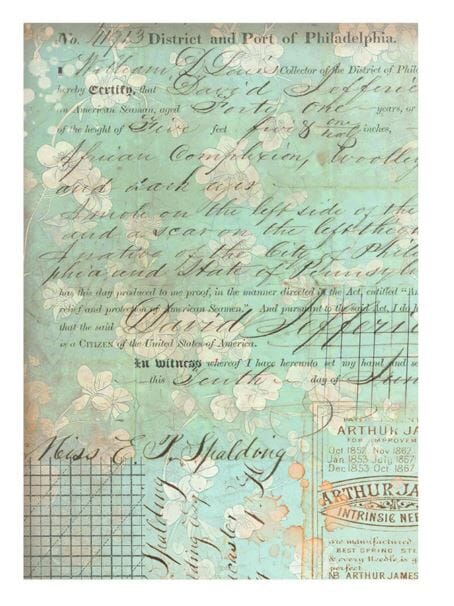 No. 41913 District and Port of Philadelphia.
I William D Lewis Collector of the District of Phil
hereby Certify, that David Jefferie
an American Seaman, aged Forty One years, or
of the height of Five feet five & one half inches,
African Complexion, Woolley
and dark eyes
a mole on the left side of the
and a scar on the left
a native of the City Phil
phia and State of Pennsylv
has this day produced to me proof, in the manner directed in the Act, entitled "An
relief and protection of American Seamen." And pursuant to the said Act, I do h
that the said David Jefferie
is a CITIZEN of the United States of America.
In witness whereof I have hereunto set my hand and se
this Tenth day of
Miss E. P. Spalding
Spalding
Spalding
PATE
ARTHUR JA
FOR IMPROVEM
Oct 1852 Nov 1867
Jan 1853 July 1867
Dec 1853 Oct 1867
ARTHUR JA
INTRINSIC NEE
are manufactured
BEST SPRING STE
& every Needle is g
perfect
NB ARTHUR JAMES